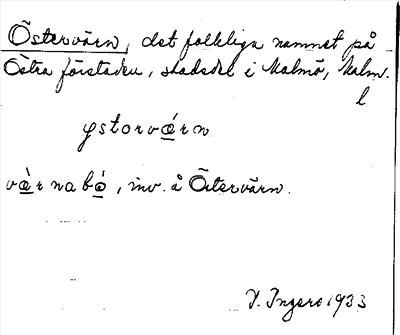 Östervärn, det folkliga namnet på
Östra förstaden, stadsdel i Malmö, Malm.
l
ystorvǽrn
væ̀rnabó, inv. å Östervärn.
I. Ingers 1933